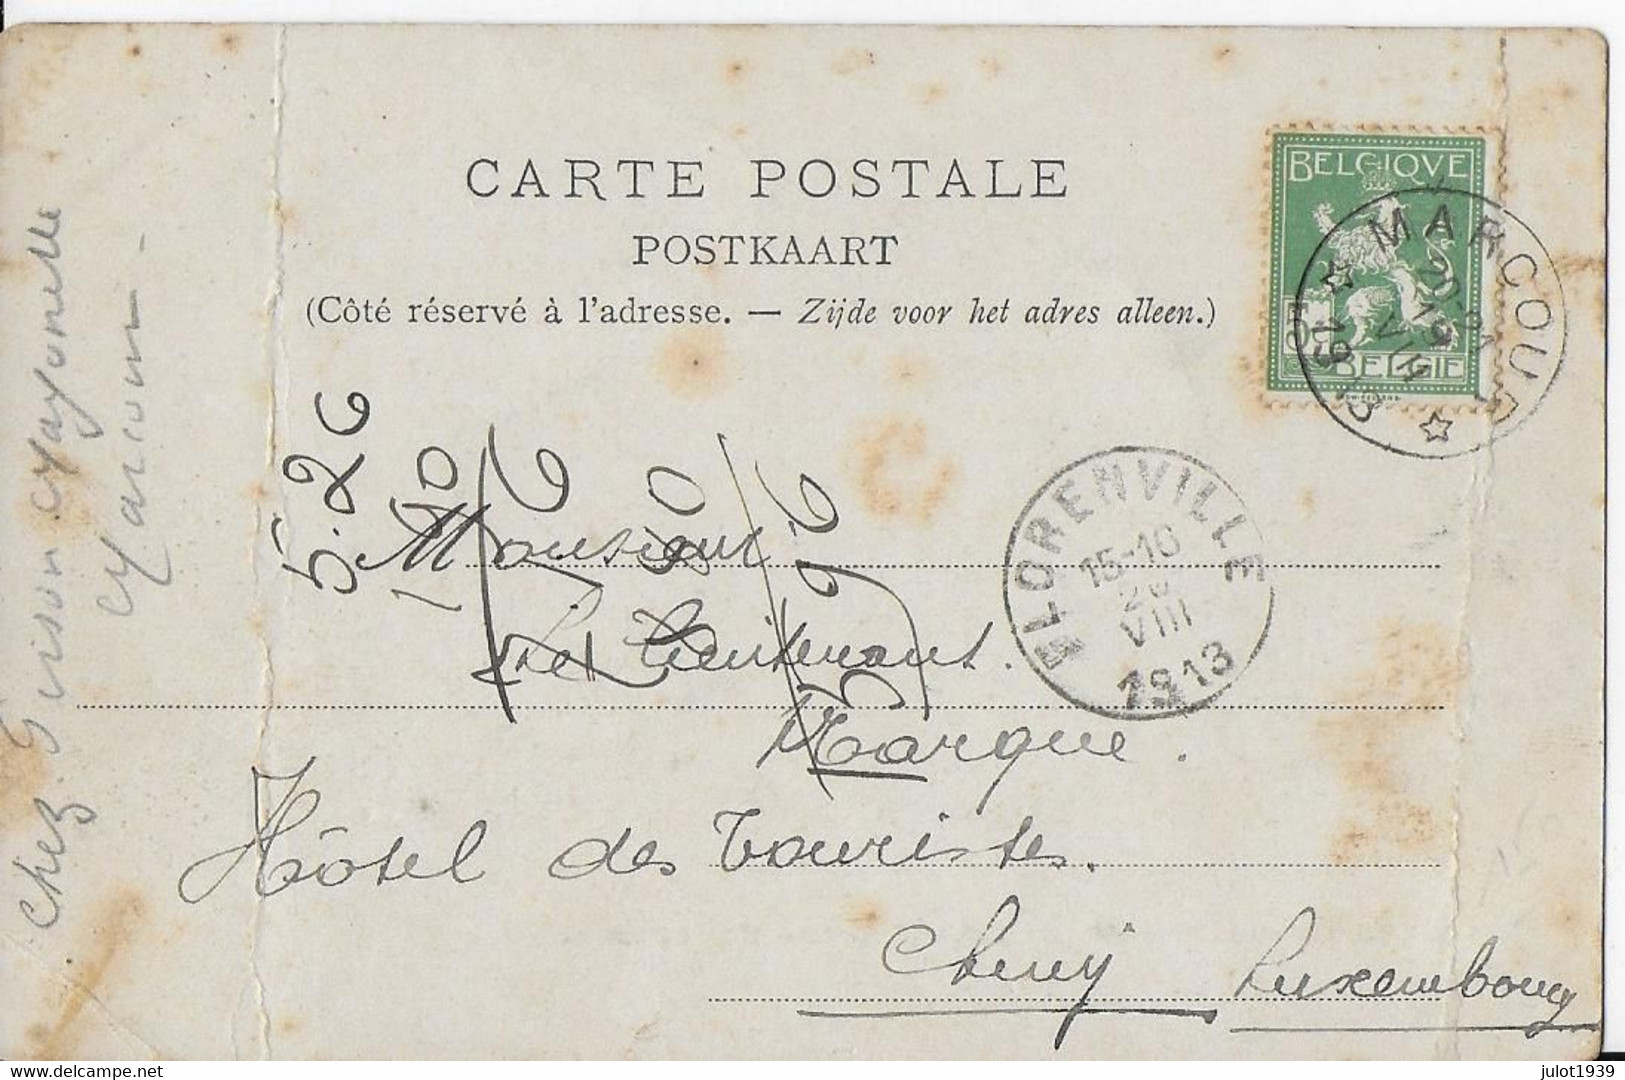 CARTE POSTALE
POSTKAART
(Côté réservé à l'adresse. — Zijde voor het adres alleen.)
BELGIQVE
5
BELGIE
MARCOUR
1913
FLORENVILLE
15-16
20
VIII
1913
5.26
Monsieur
Le Lieutenant.
Marque.
Hôtel des Touristes.
Chiny Luxembourg
Chez
Marcour
julot1939